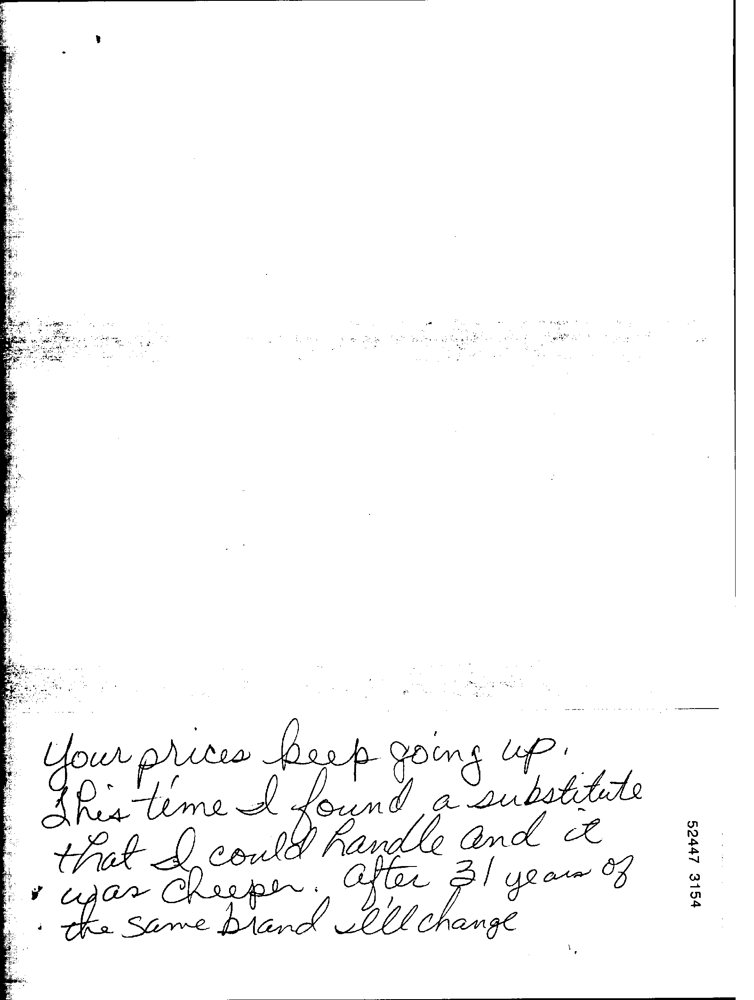 Your prices keep going up.
This time I found a substitute
that I could handle and it
was cheeper. After 31 years of
the same brand I'll change
52447 3154